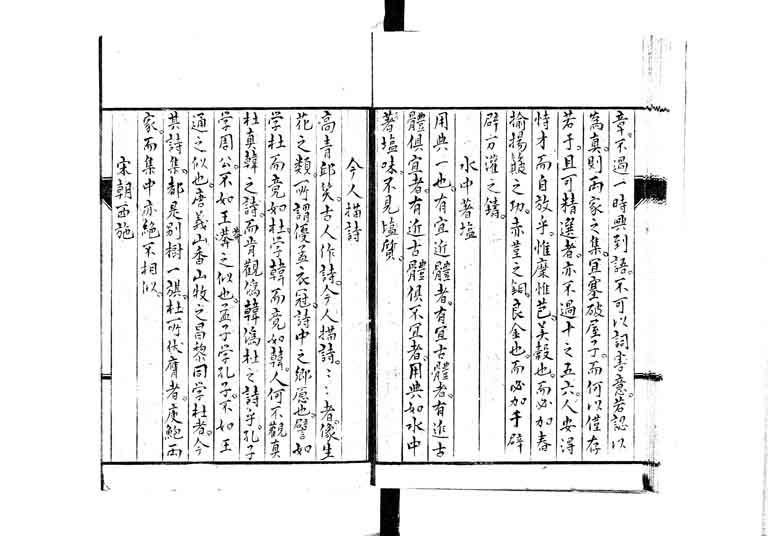 章。不過一時興到語。不可以詞害意。若認以
為真。則兩家之集。宜塞破屋子。而何以僅存
若干。且可精選者。亦不過十之五六。人安得
恃才而自放乎。惟糜惟芑。美穀也。而必加舂
揄揚簸之功。赤堇之銅。良金也。而必加千辟
辟万灌之鑄。
水中著塩
用典一也。有宜近體者。有宜古體者。有近古
體俱宜者。有近古體俱不宜者。用典如水中
著塩。味不見塩質。
今人描詩
高青邱笑古人作詩。今人描詩。描詩者。像生
花之類。所謂優孟衣冠。詩中之鄉愿也。譬如
学杜而竟如杜。学韓而竟如韓。人何不觀真
杜真韓之詩。而肯觀偽韓偽杜之詩乎。孔子
学周公。不如王莽之似也。孟子学孔子。不如王
通之似也。唐義山香山牧之昌黎同学杜者。今
其詩集。都是別樹一旗。杜所伏膺者。庾鮑兩
家。而集中亦絕不相似。
宋朝西施